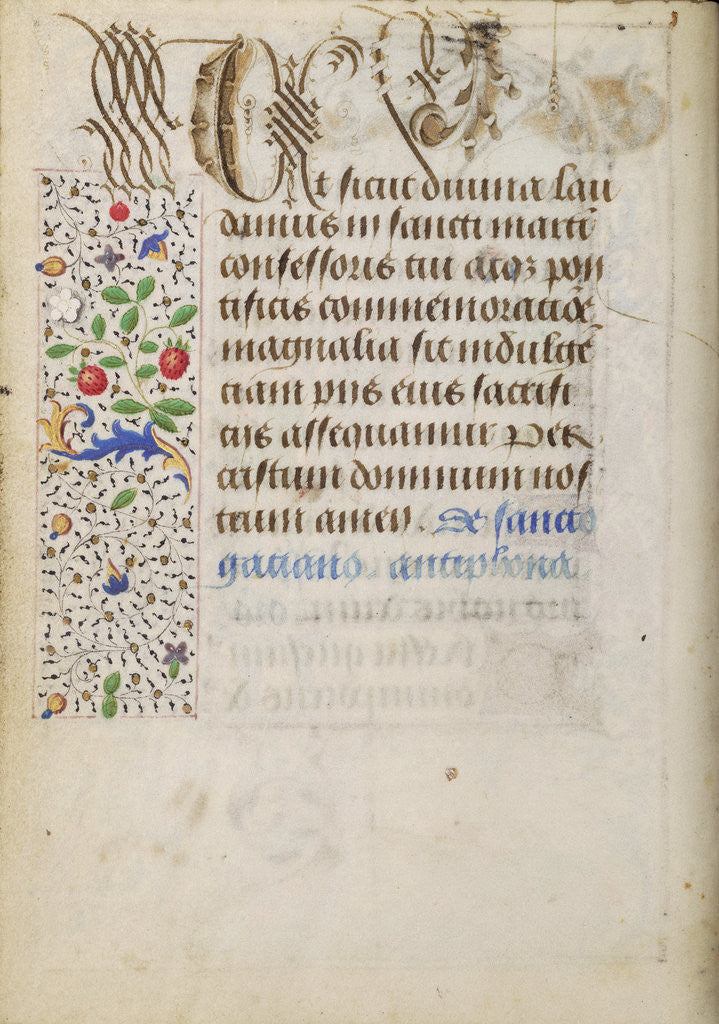 Ut sicut divina lau
damus in sancti marti
confessoris tui atqz pon
tificis commemoratiõe
magnalia sic indulgẽ
ciam piis eius sacrifi
ciis assequamur Per
cristum dominum nos
trum amen. De sancto
gaciano antiphona